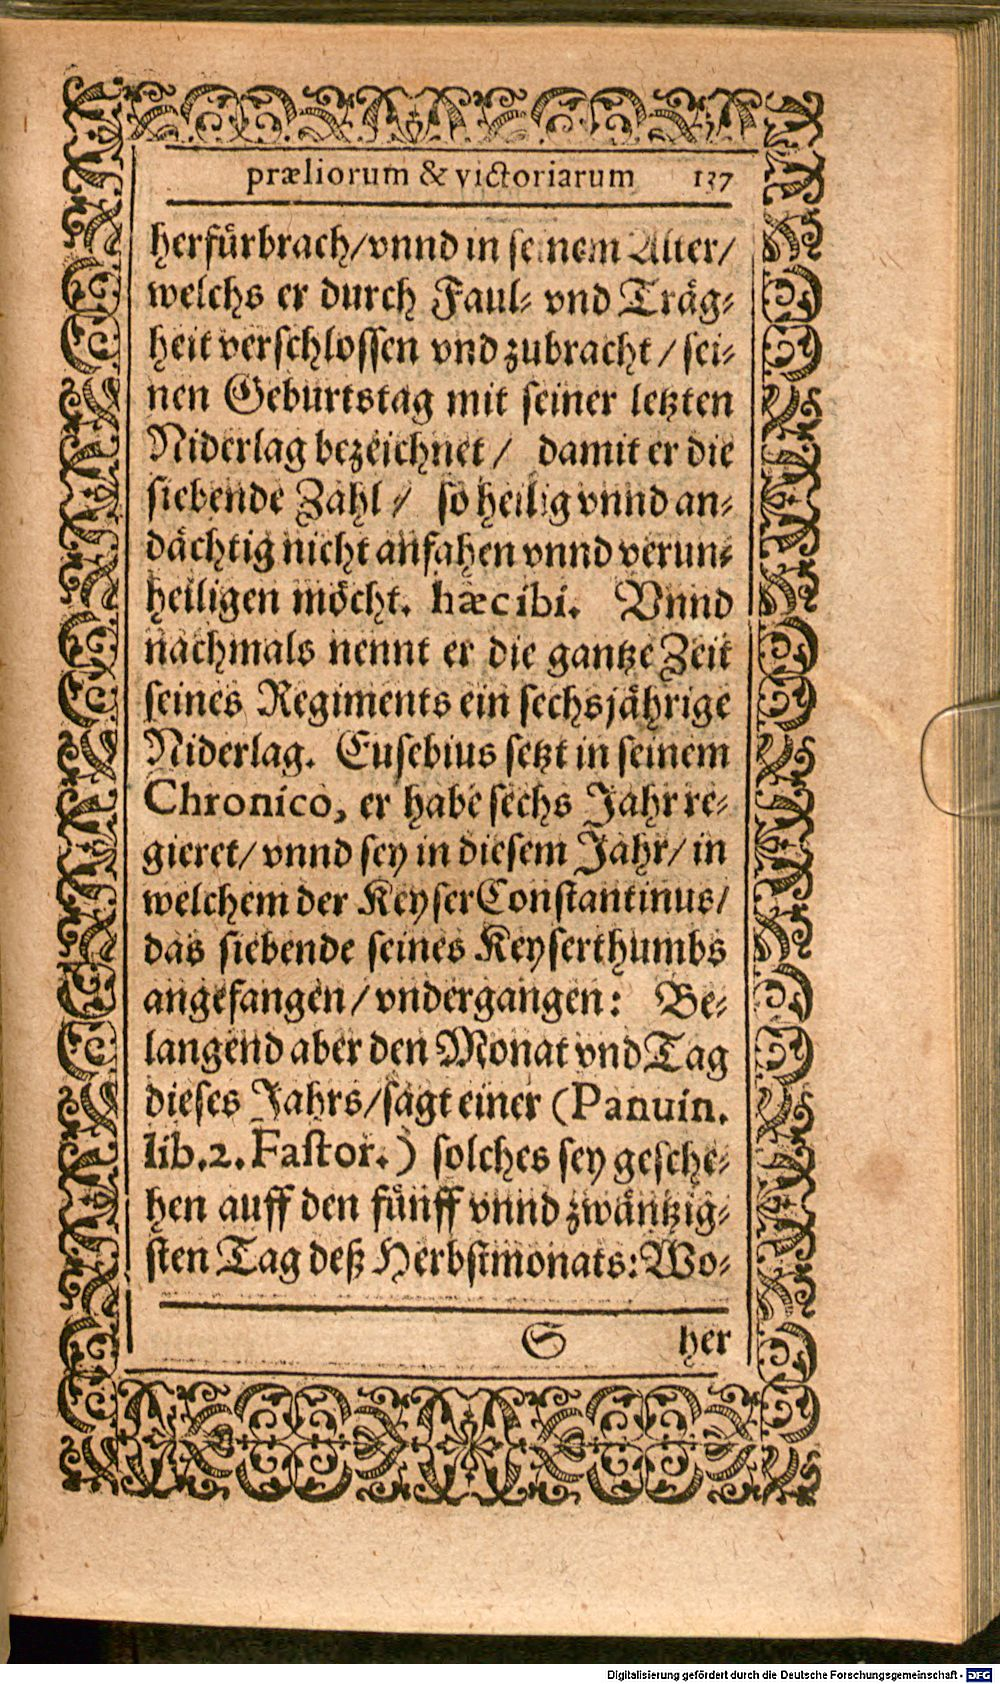 præliorum & victoriarum 137
herfürbrach/vnnd in seinem Alter/
welchs er durch Faul- vnd Träg-
heit verschlossen vnd zubracht/ sei-
nen Geburtstag mit seiner letzten
Niderlag bezeichnet/ damit er die
siebende Zahl/ so heilig vnnd an-
dächtig nicht anfahen vnnd verun-
heiligen möcht. hæc ibi. Vnnd
nachmals nennt er die gantze Zeit
seines Regiments ein sechsjährige
Niderlag. Eusebius setzt in seinem
Chronico, er habe sechs Jahr re-
gieret/ vnnd sey in diesem Jahr/ in
welchem der Keyser Constantinus/
das siebende seines Keyserthumbs
angefangen/ vndergangen: Be-
langend aber den Monat vnd Tag
dieses Jahrs/ sagt einer (Panuin.
lib. 2. Fastor.) solches sey gesche-
hen auff den fünff vnnd zwäntzig-
sten Tag deß Herbstmonats: Wo-
S her
Digitalisierung gefördert durch die Deutsche Forschungsgemeinschaft - DFG